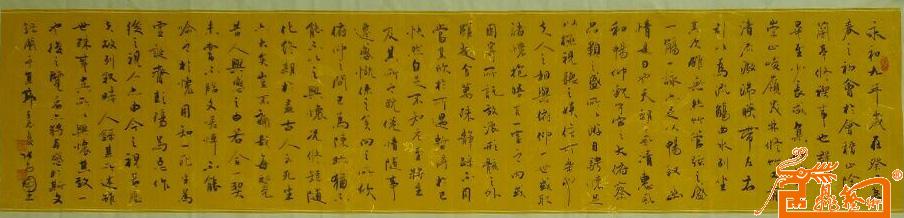 永和九年歲在癸丑暮
春之初會於會稽山陰
蘭亭脩禊事也群賢
畢至少長咸集此地有
崇山峻嶺茂林脩竹又有
清流激湍映帶左右
引以為流觴曲水列坐
其次雖無絲竹管弦之盛
一觴一詠亦足以暢敘幽
情是日也天朗氣清惠風
和暢仰觀宇宙之大俯察
品類之盛所以遊目騁懷足
以極視聽之娛信可樂也
夫人之相與俯仰一世或取
諸懷抱悟言一室之內或
因寄所託放浪形骸之外
雖趣舍萬殊靜躁不同
當其欣於所遇暫得於己
快然自足不知老之將至
及其所之既惓情隨事
遷感慨係之矣向之所欣
俯仰之間已為陳跡猶不
能不以之興懷況脩短隨
化終期於盡古人云死生
亦大矣豈不痛哉每覽
昔人興感之由若合一契
未嘗不臨文嗟悼不能
喻之於懷固知一死生為
虛誕齊彭殤為妄作
後之視今亦由今之視昔悲
夫故列敘時人錄其所述雖
世殊事異所以興懷其致一
也後之覽者亦將有感於斯文